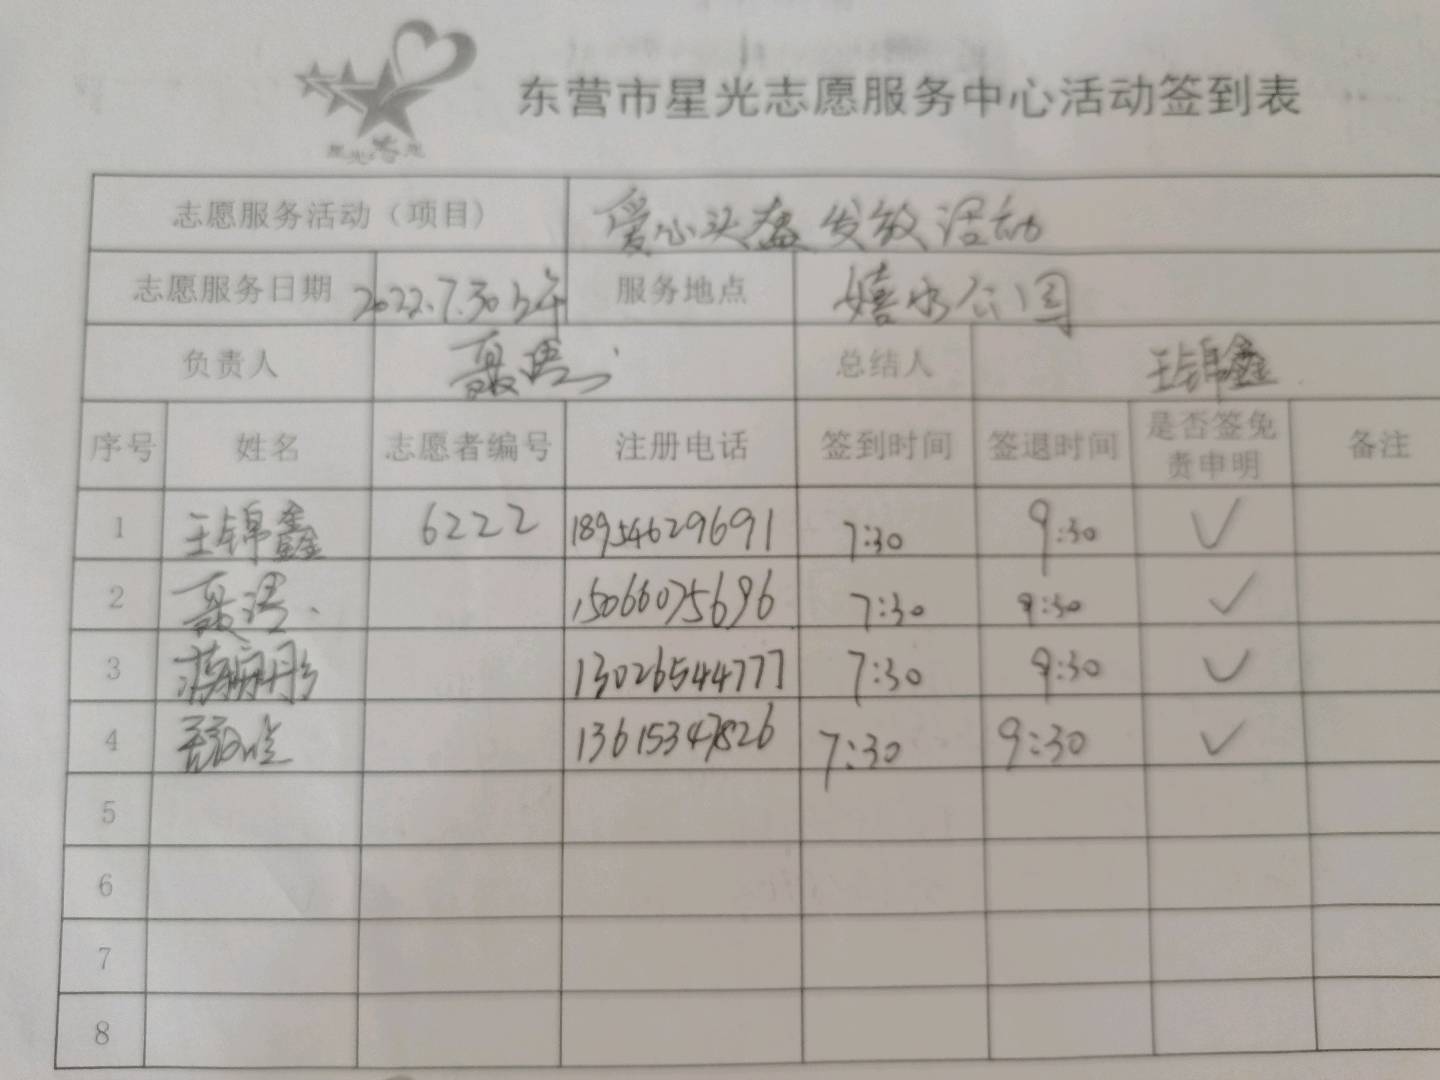 东营市星光志愿服务中心活动签到表
志愿服务活动（项目） 爱心头盔发放活动
志愿服务日期 2022.7.30上午 服务地点 嬉水公园
负责人 总结人 王锦鑫
序号 姓名 志愿者编号 注册电话 签到时间 签退时间 是否签免责申明 备注
1 王锦鑫 6222 18954629691 7:30 9:30 ✓
2 15066075696 7:30 9:30 ✓
3 13026544777 7:30 9:30 ✓
4 13615347826 7:30 9:30 ✓
5
6
7
8